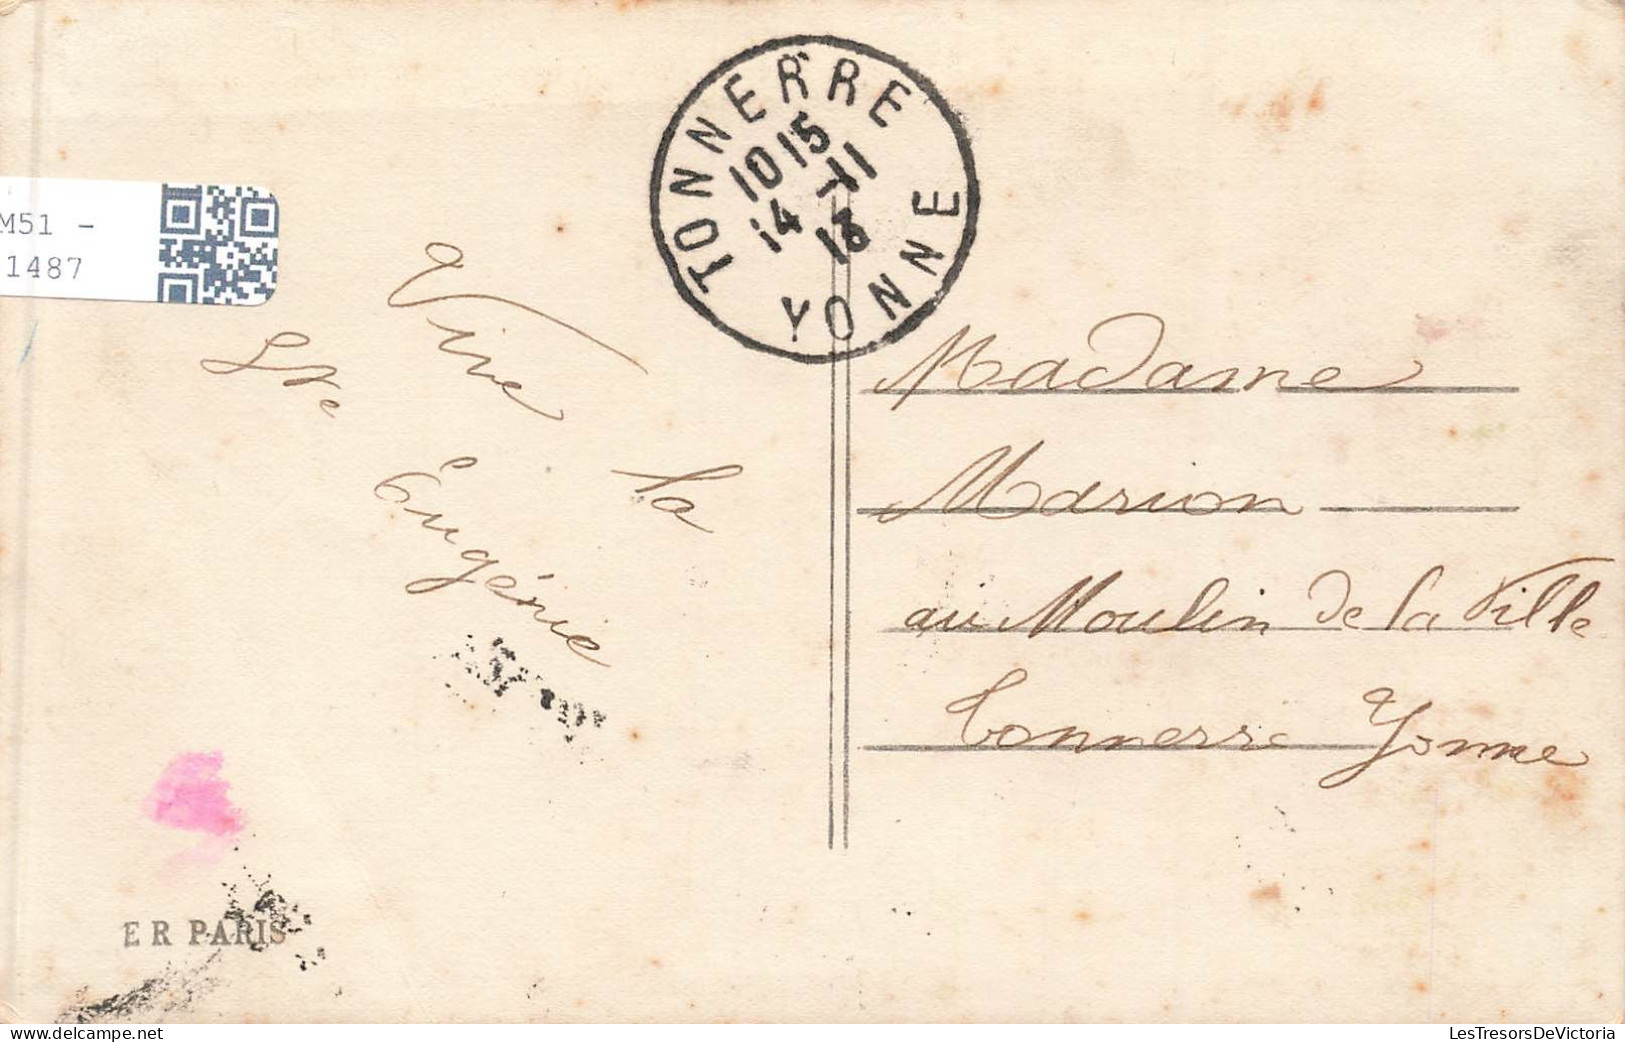 TONNERRE
10 15
14 11
13
YONNE
M51 -
1487
Vive la
Ste Eugénie
Madame
Marion
au Moulin de la Ville
Tonnerre Yonne
E R PARIS
LesTresorsDeVictoria
delcampe.net